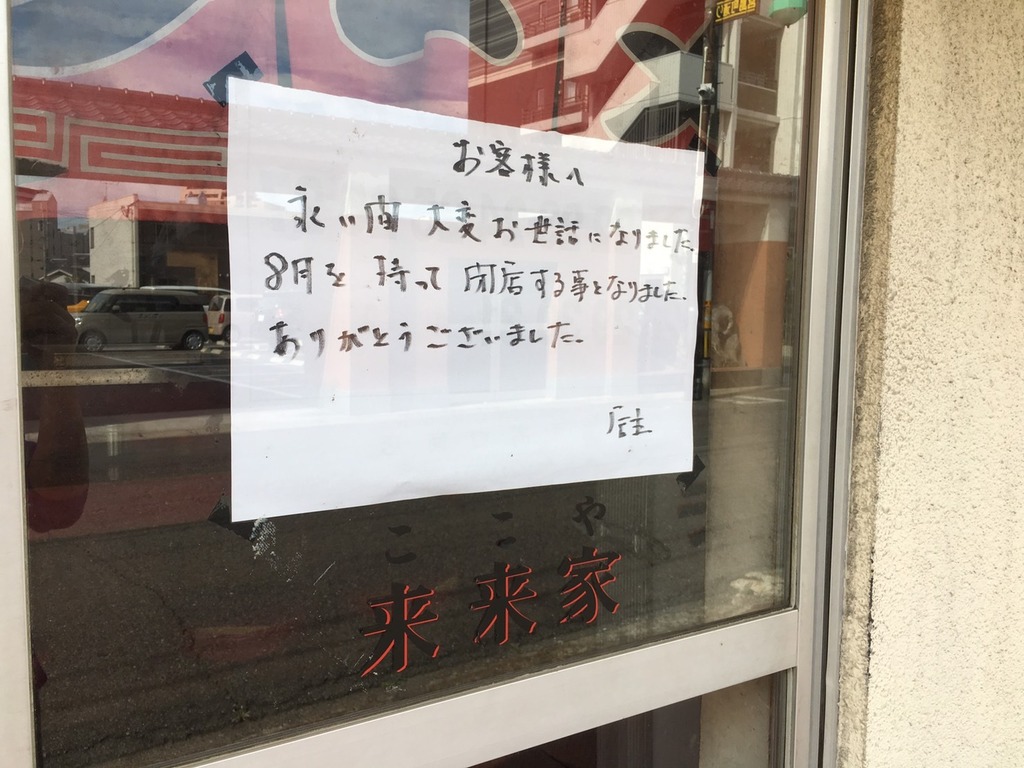 お客様へ
永い間 大変お世話になりました。
8月を持って 閉店する事となりました。
ありがとうございました。
店主
ここや
来来家